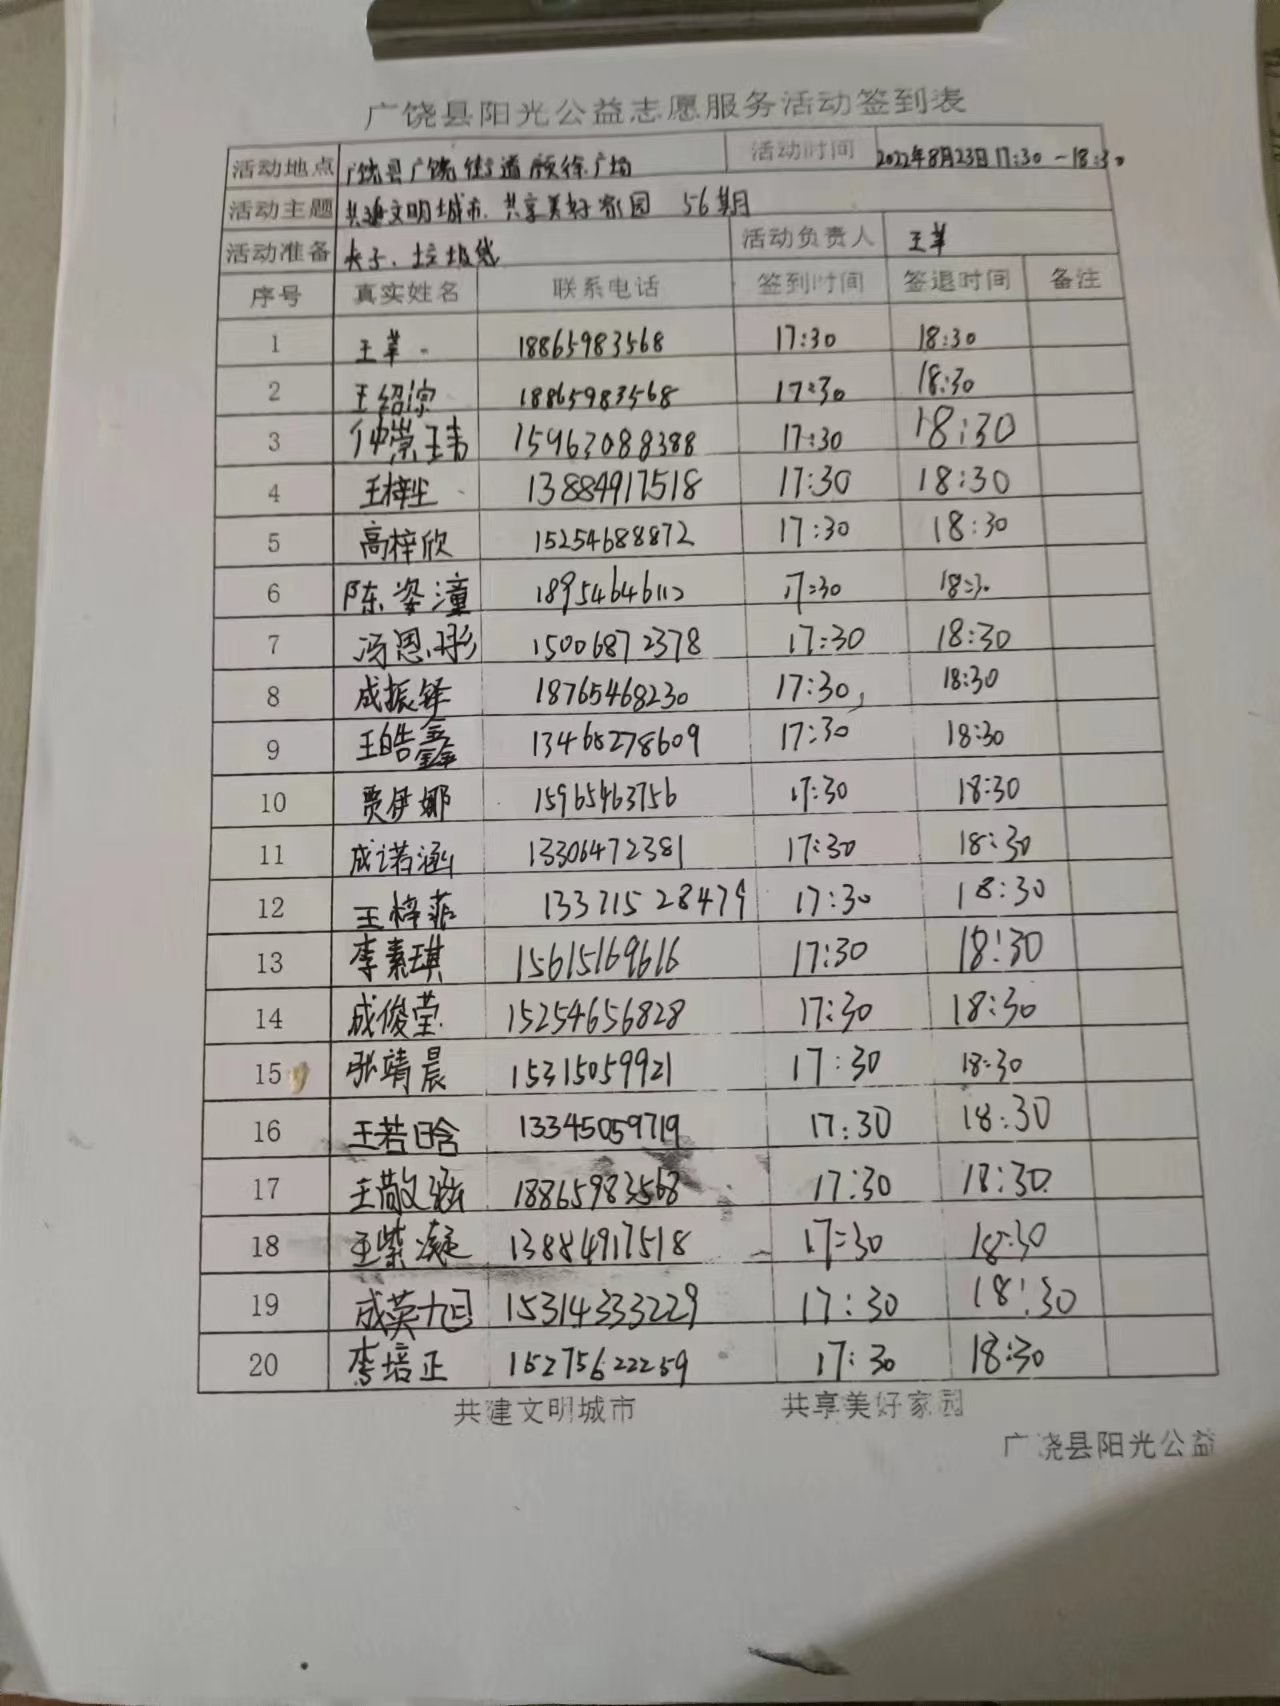 广饶县阳光公益志愿服务活动签到表
活动地点 广饶县广饶街道颜徐广场 活动时间 2022年8月23日17:30-18:30
活动主题 共建文明城市、共享美好家园 56期
活动准备 夹子、垃圾袋 活动负责人 王苹
序号 真实姓名 联系电话 签到时间 签退时间 备注
1 王苹 18865983568 17:30 18:30
2 王绍淙 18865983568 17:30 18:30
3 仲崇玮 15963088388 17:30 18:30
4 王梓尘 13884917518 17:30 18:30
5 高梓欣 15254688872 17:30 18:30
6 陈姿潼 18954646112 17:30 18:30
7 冯恩彤 15006872378 17:30 18:30
8 成振铎 18765468230 17:30 18:30
9 王皓鑫 13468278609 17:30 18:30
10 贾伊娜 15965463756 17:30 18:30
11 成诺涵 13306472381 17:30 18:30
12 王梓菲 13371528479 17:30 18:30
13 李素琪 15615169616 17:30 18:30
14 成俊莹 15254656828 17:30 18:30
15 张靖晨 15315059921 17:30 18:30
16 王若晗 13345059719 17:30 18:30
17 王敬涵 18865983568 17:30 18:30
18 王紫凝 13884917518 17:30 18:30
19 成英旭 15314333229 17:30 18:30
20 李培正 15275622259 17:30 18:30
共建文明城市 共享美好家园
广饶县阳光公益